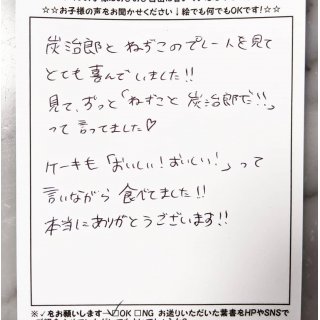 ☆☆お子様の声をお聞かせください♩絵でも何でもOKです!☆☆
炭治郎と ねずこのプレートを見て
とても喜んでいました!!
見て、ずっと「ねずこと 炭治郎だ!!」
って言ってました♡
ケーキも「おいしい!おいしい!」って
言いながら 食べてました!!
本当にありがとうございます!!
※✓をお願いします→☑OK □NG お送りいただいた葉書をHPやSNSで